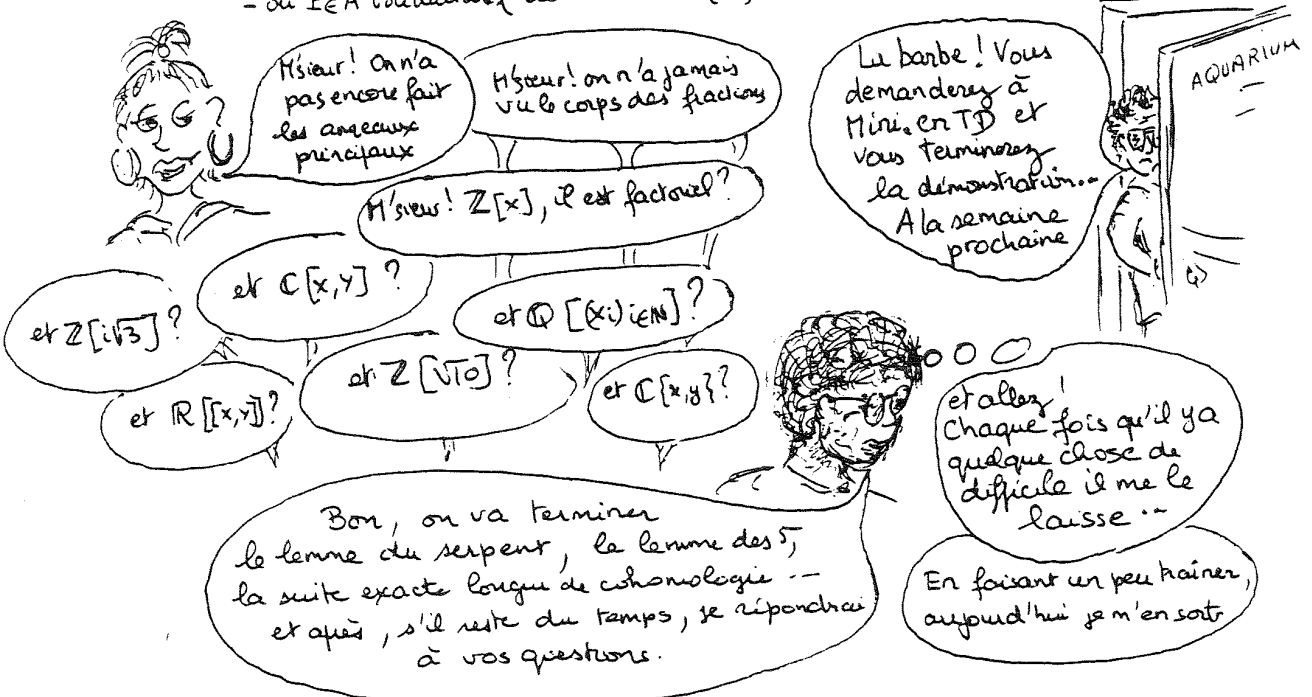 - ou I∈A
M'sieur! On n'a
pas encore fait
les anneaux
principaux
M'sieur! on n'a jamais
vu le corps des fractions
M'sieur! ℤ[x], il est factoriel?
et ℂ[x,y]?
et ℚ[(xi)i∈ℕ]?
et ℤ[i√3]?
et ℤ[√10]?
et ℂ{x,y}?
et ℝ[[x,y]]?
La barbe! Vous
demanderez à
Mini. en TD et
vous terminerez
la démonstration...
A la semaine
prochaine
AQUARIUM
et allez!
Chaque fois qu'il y a
quelque chose de
difficile il me le
laisse...
En faisant un peu traîner,
aujourd'hui je m'en sors
Bon, on va terminer
le lemme du serpent, le lemme des 5,
la suite exacte longue de cohomologie...
et après, s'il reste du temps, je répondrai
à vos questions.